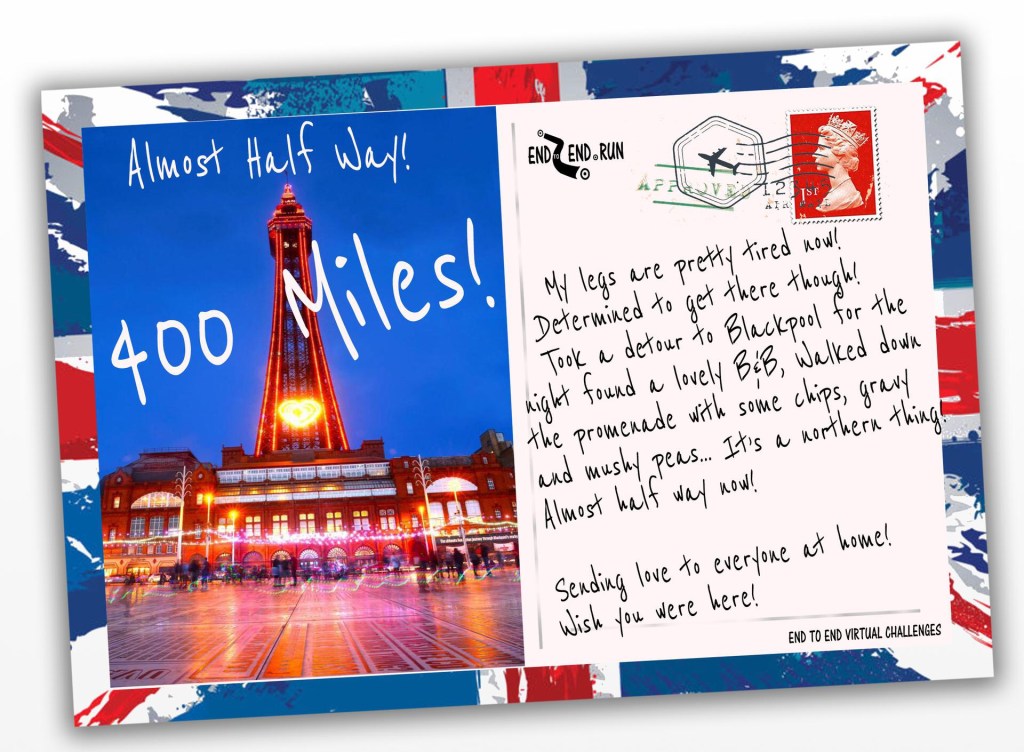 Almost Half Way!
400 Miles!
END TO END.RUN
APPROVED
1st
My legs are pretty tired now!
Determined to get there though!
Took a detour to Blackpool for the
night found a lovely B&B, Walked down
the promenade with some chips, gravy
and mushy peas... It's a northern thing!
Almost half way now!
Sending love to everyone at home!
Wish you were here!
END TO END VIRTUAL CHALLENGES